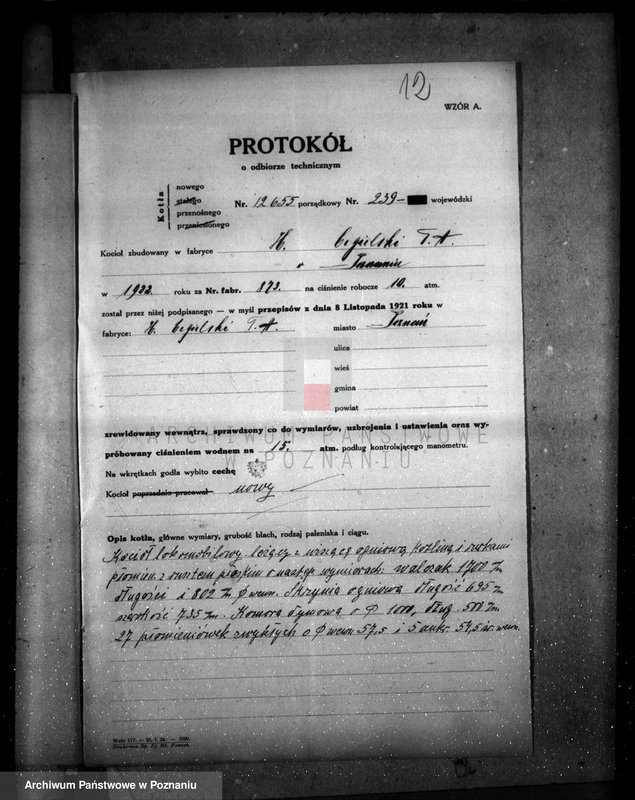 12
WZÓR A.
PROTOKÓŁ
o odbiorze technicznym
Kotła
nowego
stałego
przenośnego
przeniesionego
Nr. 12655 porządkowy Nr. 239- wojewódzki
Kocioł zbudowany w fabryce H. Cegielski T. A.
w Poznaniu
w 1922. roku za Nr. fabr. 873. na ciśnienie robocze 10. atm.
został przez niżej podpisanego — w myśl przepisów z dnia 8 Listopada 1921 roku w
fabryce: H. Cegielski T. A. miasto Poznań
ulica
wieś
gmina
powiat
zrewidowany wewnątrz, sprawdzony co do wymiarów, uzbrojenia i ustawienia oraz wy-
próbowany ciśnieniem wodnem na 15. atm. podług kontrolującego manometru.
ARCHIWUM PAŃSTWOWE
W POZNANIU
Na wkrętkach godła wybito cechę
Kocioł poprzednio pracował nowy
Opis kotła, główne wymiary, grubość blach, rodzaj paleniska i ciągu.
Kocioł lokomobilowy leżący z wiszącą ogniową i rurkami
płomien. z rusztem płaskim o następ. wymiarach: walczak 1700 m/m
długości i 802 m/m φ wewn. Skrzynia ogniowa długość 695 m/m
szerokość 735 m/m. Komora dymowa o φ 1000, dług. 500 m/m.
27 płomieniówek zwykłych o φ wewn 57,5 i 5 ankr. 54,5 śr. wewn.
Archiwum Państwowe w Poznaniu